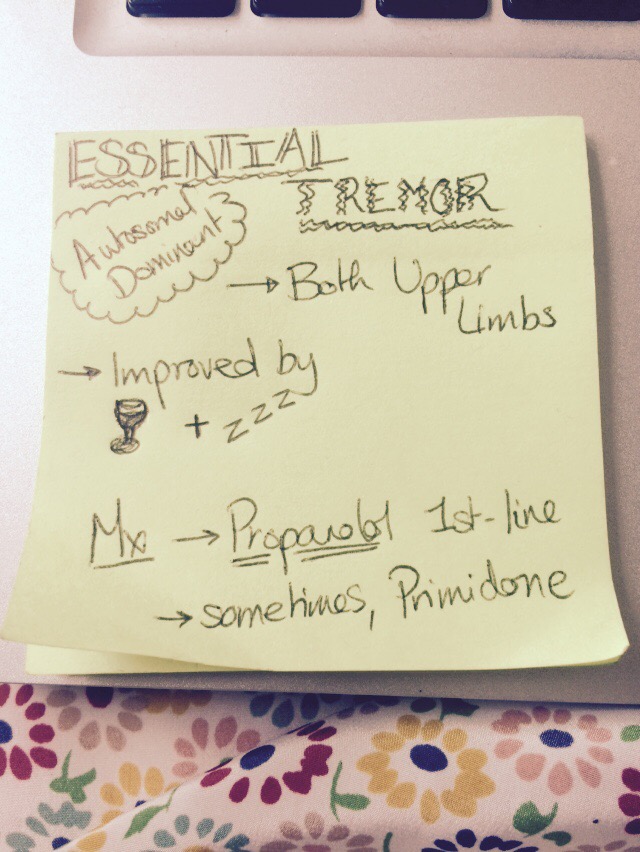 ESSENTIAL
TREMOR
Autosomal
Dominant
→ Both Upper
Limbs
→ Improved by
+ zzz
Mx → Propanolol 1st-line
→ sometimes, Primidone